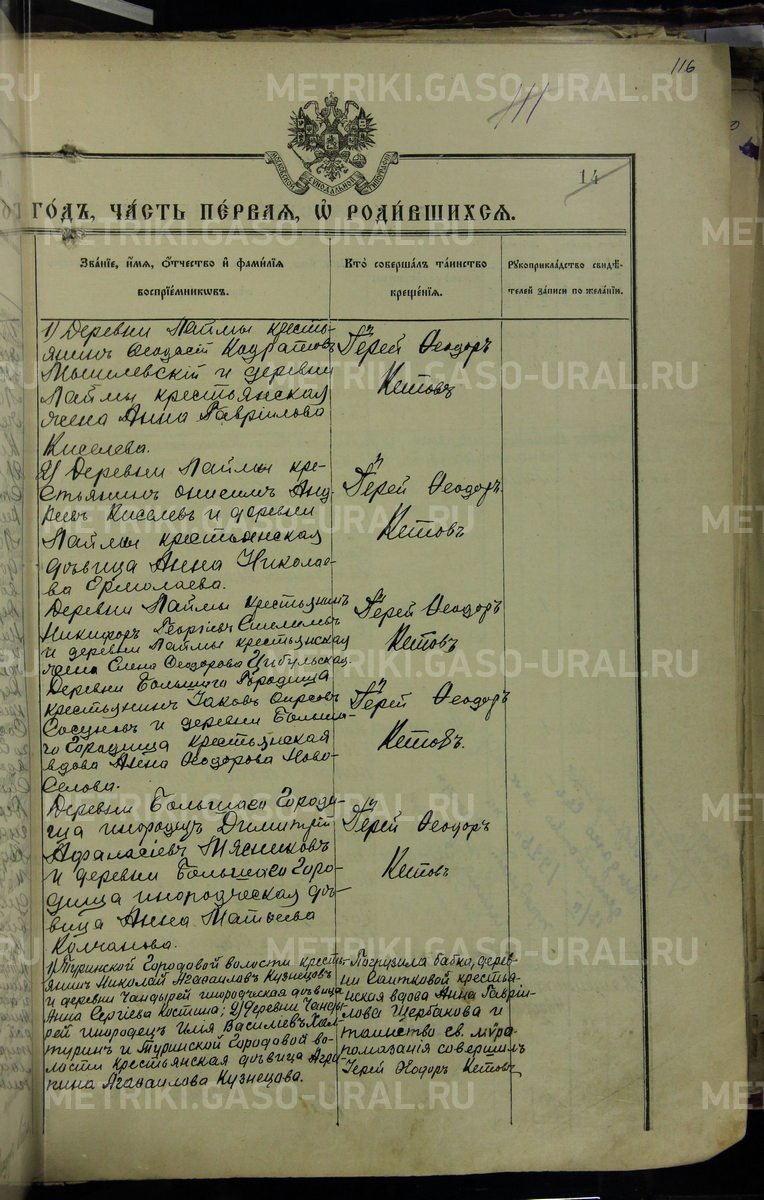 116
111
14
МОСКОВСКОЙ СѴНОДАЛЬНОЙ ТИПОГРАФІИ
ГО́ДЪ, ЧА́СТЬ ПЕ́РВАЯ, Ѡ҆ РОДИ́ВШИХСЯ.
Зва́ніе, и҆́мя, ѻ҆́тчество и҆ фами́лія
воспріе́мниковъ.
Кто̀ соверша́лъ та́инство
креще́нія.
Рукоприкла́дство свидѣ́-
телей за́писи по жела́нію.
1) Деревни Лаймы кресть-
янинъ Ѳеодосій Кодратовъ
Мышлевскій и деревни
Лаймы крестьянская
жена Анна Гавріилова
Киселева.
Іерей Ѳеодоръ
Кетовъ
2) Деревни Лаймы кре-
стьянинъ Онисимъ Анд-
реевъ Киселевъ и деревни
Лаймы крестьянская
дѣвица Анна Николае-
ва Ермолаева.
Іерей Ѳеодоръ
Кетовъ
Деревни Лаймы крестьянинъ
Никифоръ Георгіевъ
и деревни Лаймы крестьянская
жена Елена Ѳеодорова Цибульская.
Іерей Ѳеодоръ
Кетовъ
Деревни Большого Городища
крестьянинъ Іаковъ Фирсовъ
Сосуновъ и деревни Больша-
го Городища крестьянская
вдова Анна Ѳеодорова Ново-
селова.
Іерей Ѳеодоръ
Кетовъ.
Деревни Большаго Городи-
ща инородецъ Димитрій
Аѳанасіевъ Мясниковъ
и деревни Большаго Горо-
дища инородческая дѣ-
вица Анна Матѳеева
Колчанова.
Іерей Ѳеодоръ
Кетовъ
1) Туринской Городовой волости кресть-
янинъ Николай Агафаиловъ Кузнецовъ
и деревни Чандырей инородческая дѣвица
Анна Сергіева Костина; 2) Деревни Чанды-
рей инородецъ Илья Василіевъ Хал-
туринъ и Туринской Городовой во-
лости крестьянская дѣвица Агра-
пина Агафаилова Кузнецова.
Погрузила бабка, дерев-
ни Саитковой крестья-
нская вдова Анна Гаврiи-
лова Щербакова и
таинство св. мѵра-
помазанія совершилъ
Іерей Ѳеодоръ Кетовъ
METRIKI.GASO-URAL.RU